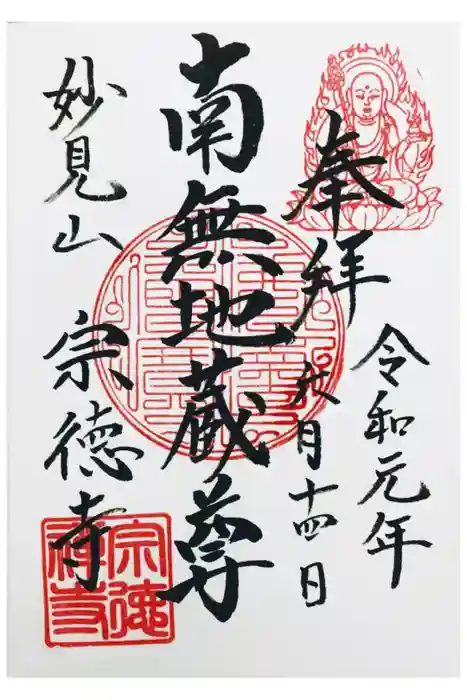 奉拝
令和元年
月十四日
南無地蔵尊
妙見山 宗徳寺
宗徳
禅寺